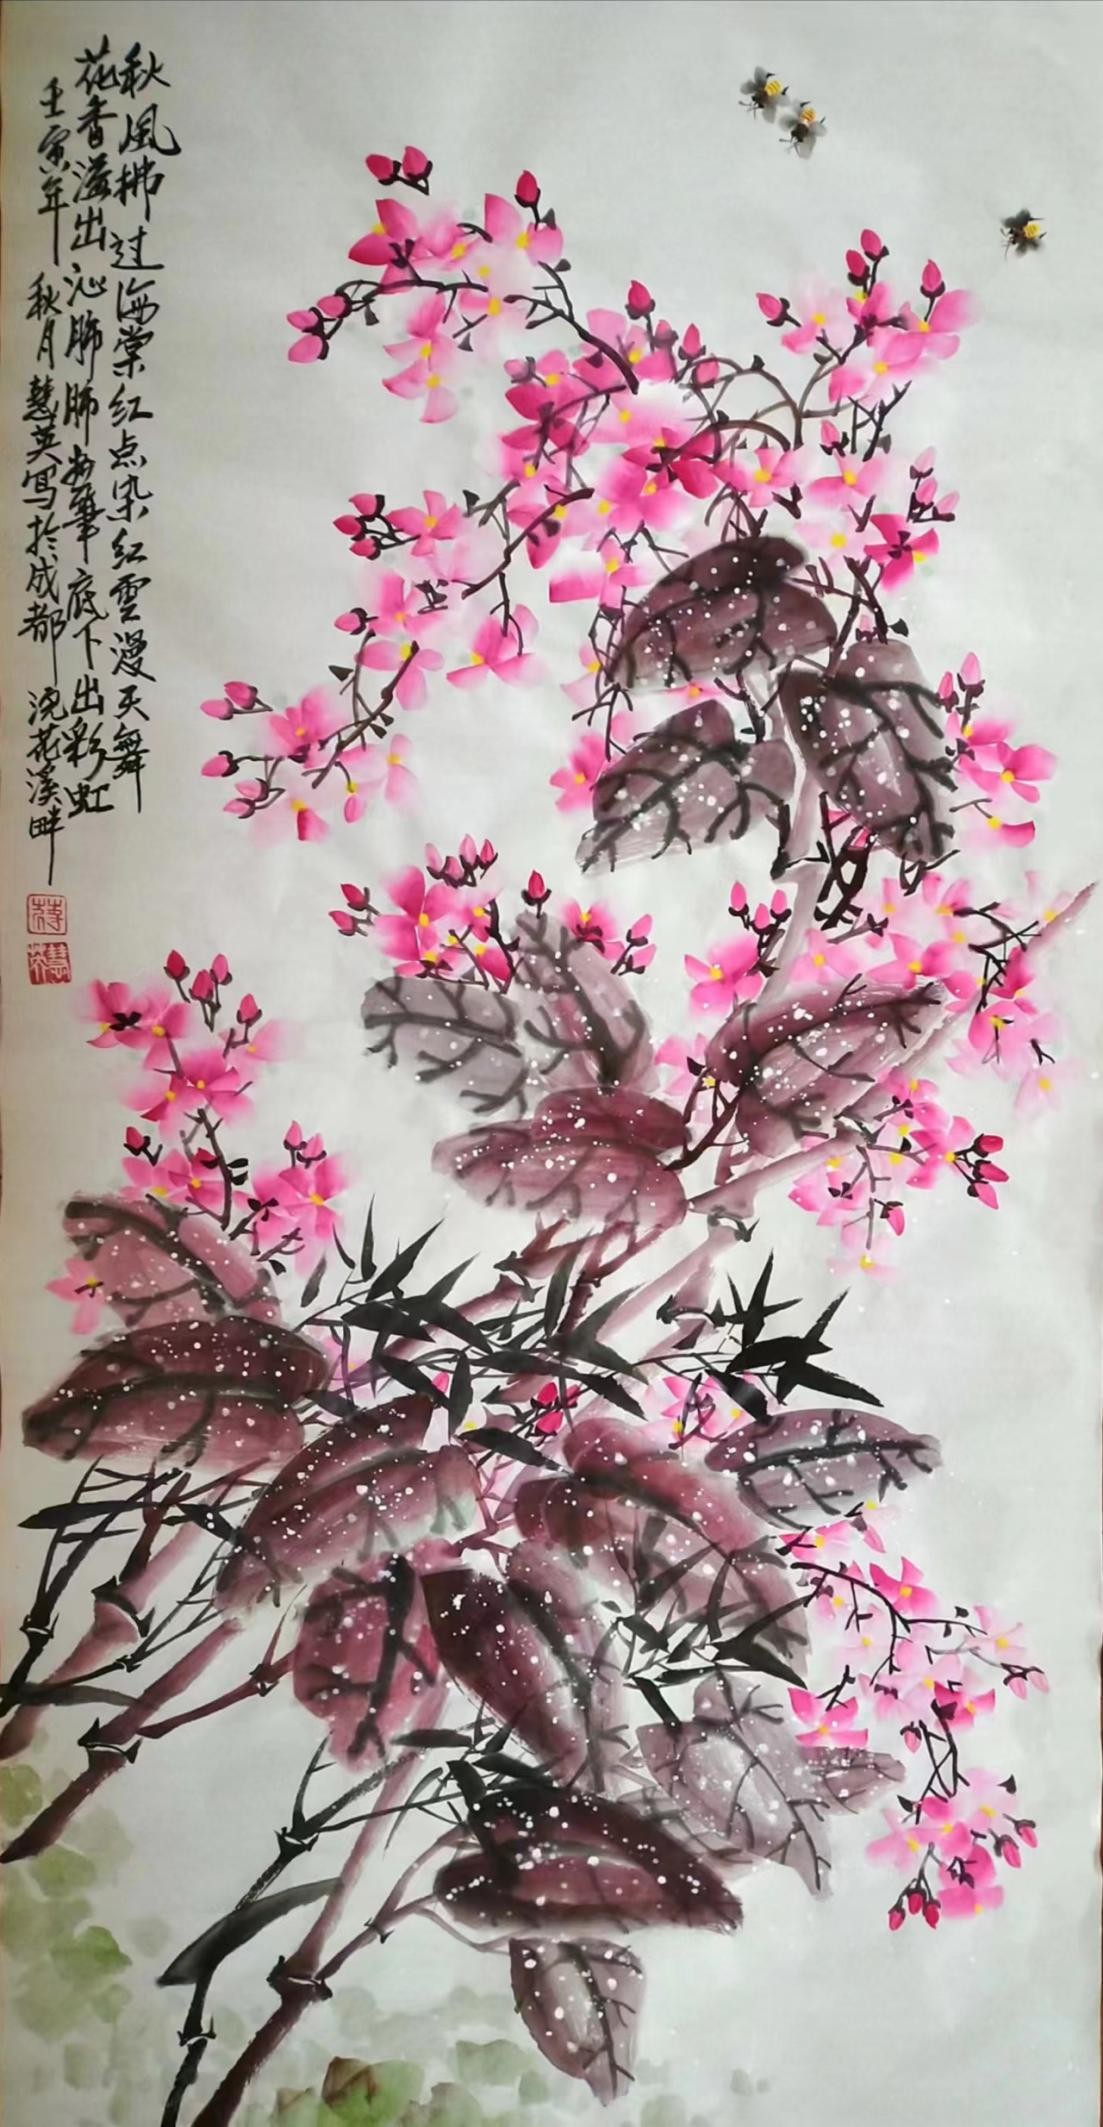 秋风拂过海棠红点染红雲漫天舞
花香溢出沁肺肺妙筆底下出彩虹
壬寅年秋月慧英寫於成都浣花溪畔
蒋
慧英